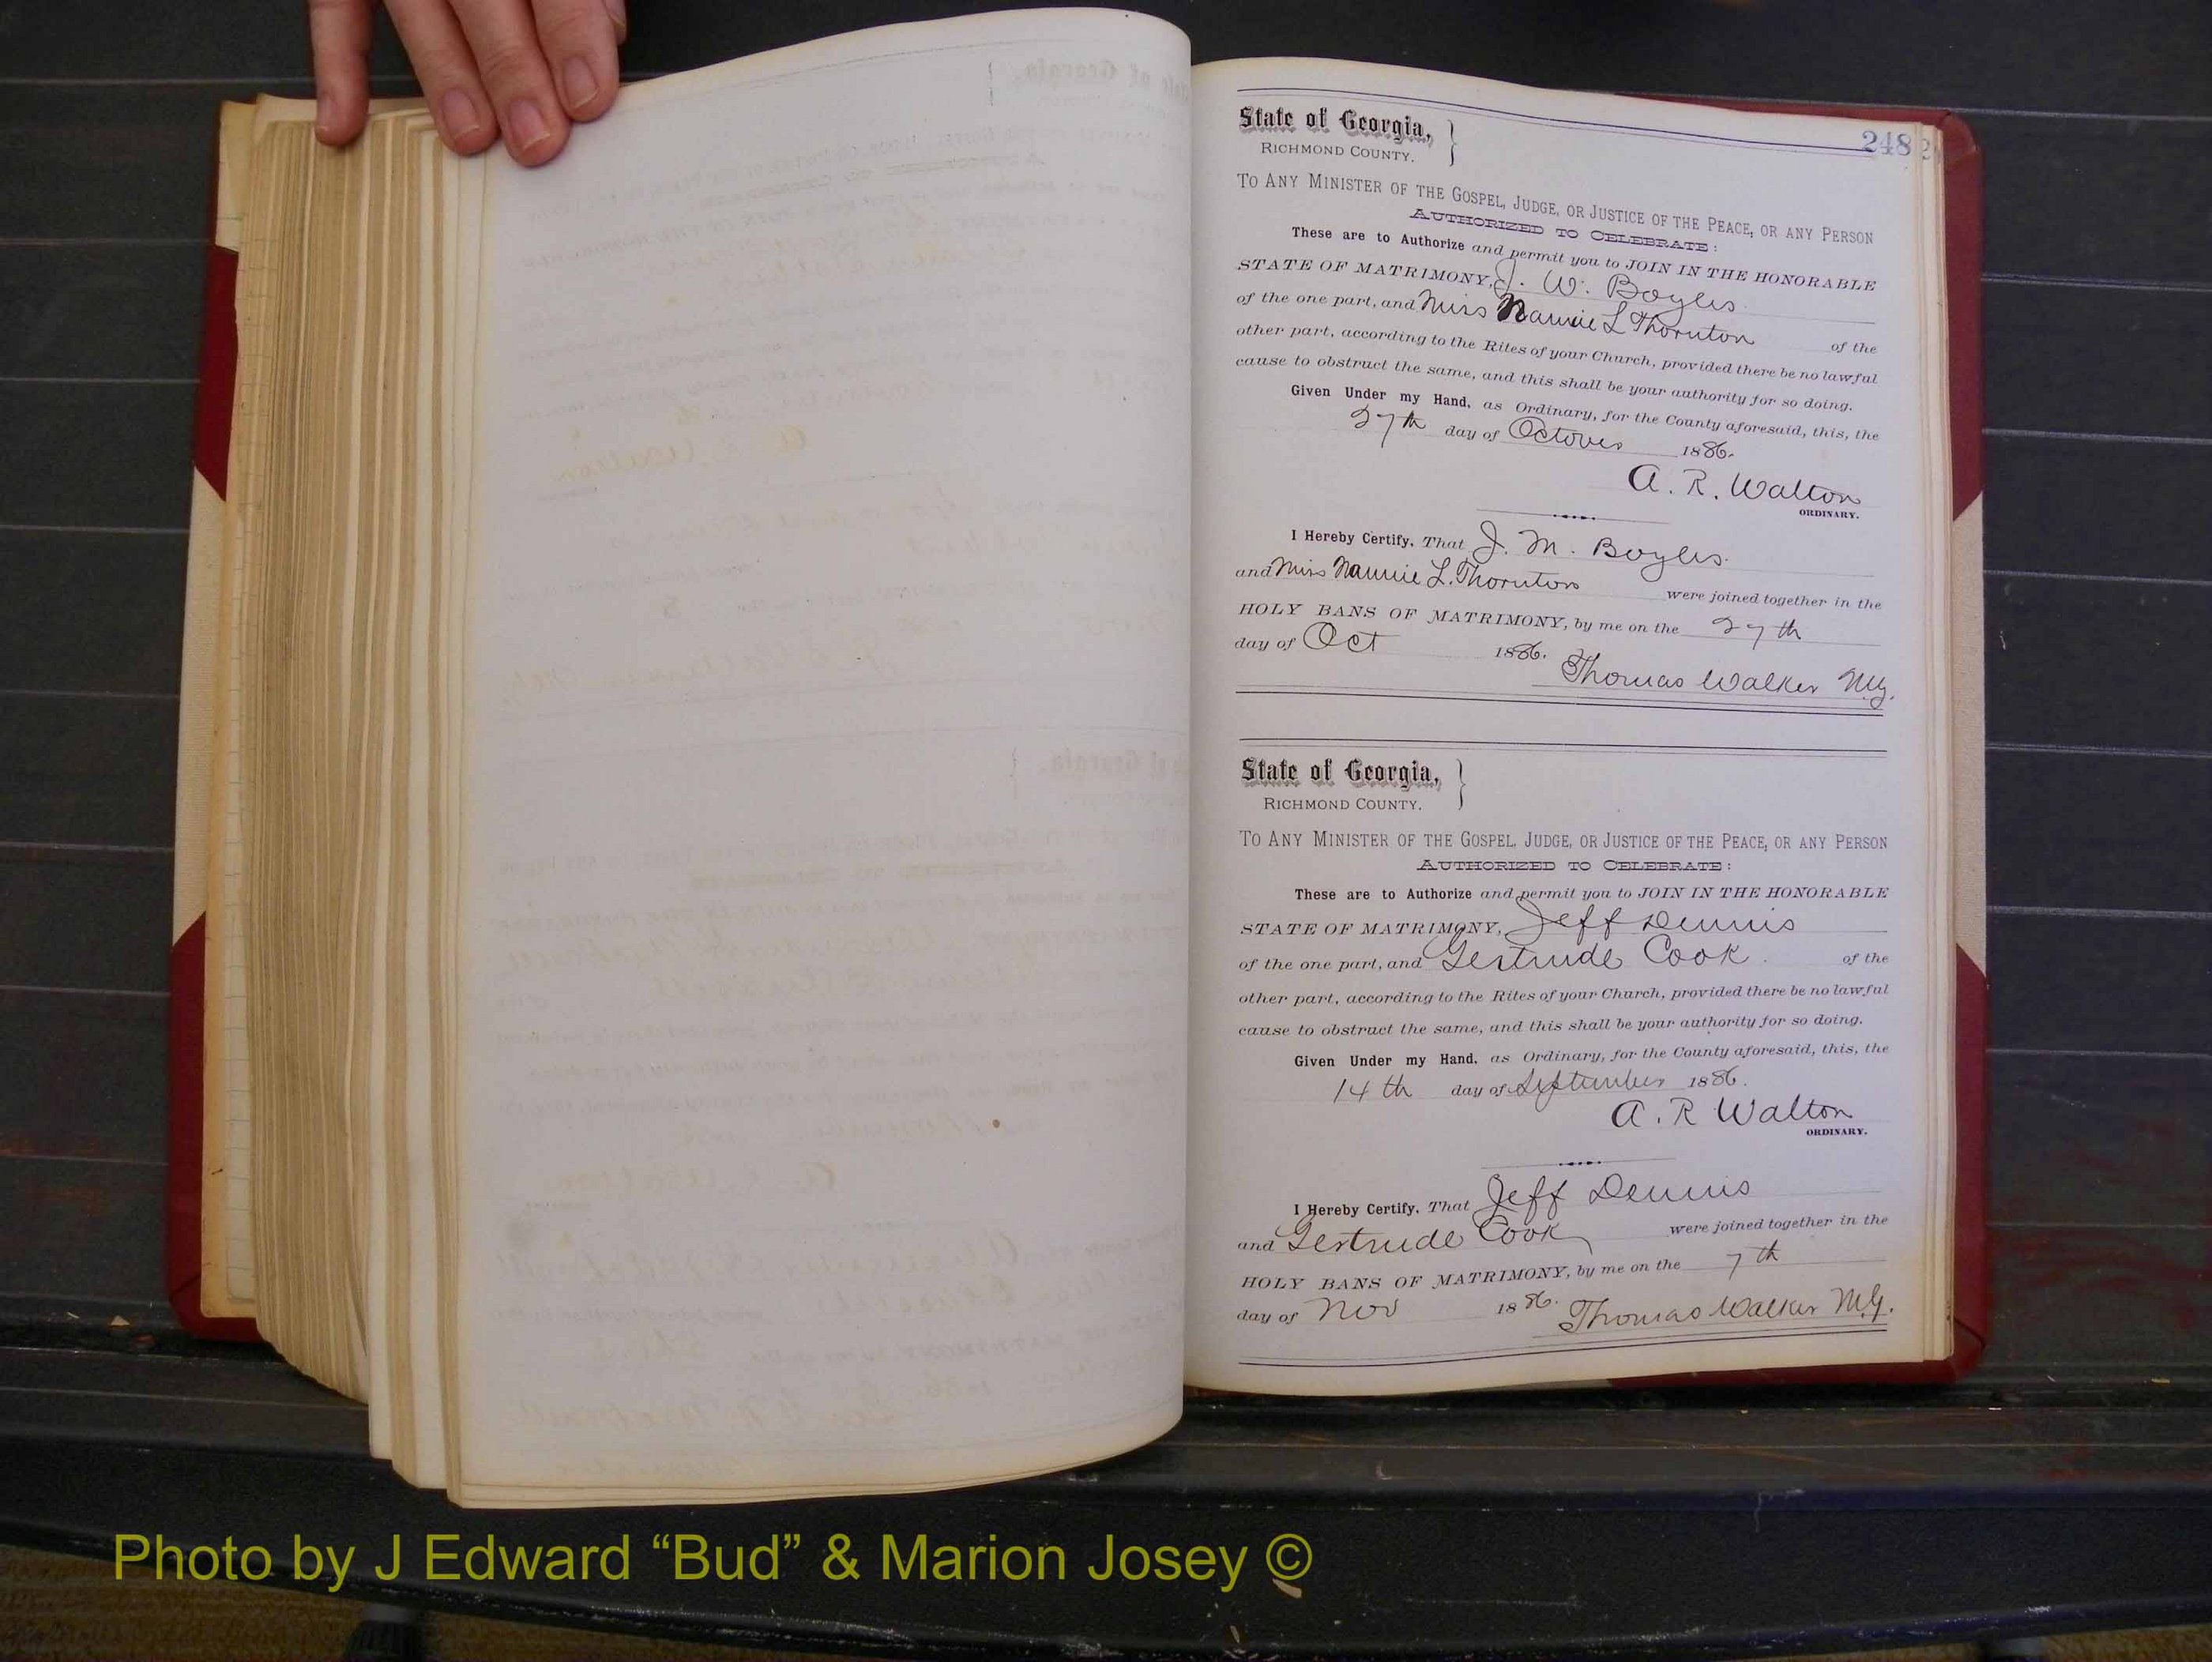 248
State of Georgia,
RICHMOND COUNTY.
TO ANY MINISTER OF THE GOSPEL, JUDGE, OR JUSTICE OF THE PEACE, OR ANY PERSON
AUTHORIZED TO CELEBRATE:
These are to Authorize and permit you to JOIN IN THE HONORABLE
STATE OF MATRIMONY, J. W. Boyles
of the one part, and Miss Nannie L Thornton of the
other part, according to the Rites of your Church, provided there be no lawful
cause to obstruct the same, and this shall be your authority for so doing.
Given Under my Hand, as Ordinary, for the County aforesaid, this, the
27th day of October 1886.
A. R. Walton
ORDINARY.
I Hereby Certify, That J. M. Boyles.
and Miss Nannie L. Thornton were joined together in the
HOLY BANS OF MATRIMONY, by me on the 27th
day of Oct 1886.
Thomas Walker M.G.
State of Georgia,
RICHMOND COUNTY.
TO ANY MINISTER OF THE GOSPEL, JUDGE, OR JUSTICE OF THE PEACE, OR ANY PERSON
AUTHORIZED TO CELEBRATE:
These are to Authorize and permit you to JOIN IN THE HONORABLE
STATE OF MATRIMONY, Jeff Dennis
of the one part, and Gertrude Cook of the
other part, according to the Rites of your Church, provided there be no lawful
cause to obstruct the same, and this shall be your authority for so doing.
Given Under my Hand, as Ordinary, for the County aforesaid, this, the
14th day of September 1886.
A. R Walton
ORDINARY.
I Hereby Certify, That Jeff Dennis
and Gertrude Cook were joined together in the
HOLY BANS OF MATRIMONY, by me on the 7th
day of Nov 1886. Thomas Walker M.G.
Photo by J Edward “Bud” & Marion Josey ©